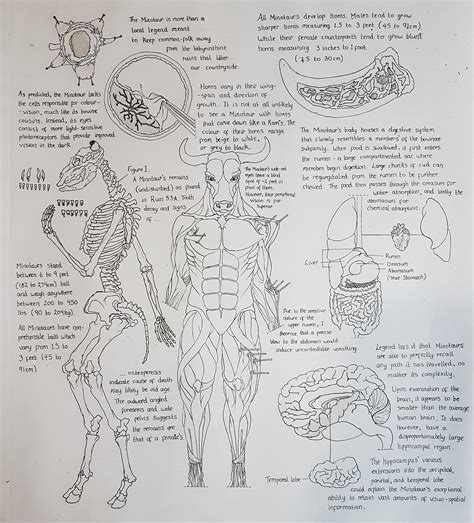 The Minotaur is more than a
local legend meant
to keep common-folk away
from the labyrinthine
ruins that litter
our countryside
All Minotaurs develop horns. Males tend to grow
sharper horns measuring 1.5 to 3 feet (45 to 91cm)
While their female counterparts tend to grow blunt
horns measuring 3 inches to 1 foot
(7.5 to 30cm)
As predicted, the Minotaur lacks
the cells responsible for colour-
-vision, much like its bovine
cousins. Instead, its eyes
consist of more light-sensitive
photoreceptors that provide improved
vision in the dark.
Horns vary in their wing-
-span and direction of
growth. It is not at all unlikely
to see a Minotaur with horns
that curve down like a Ram's. The
colour of these horns range
from beige to white,
or grey to black.
The Minotaur's body houses a digestive system
that closely resembles a members of the bovinae
subfamily. When food is swallowed, it first enters
the rumen - a large compartmental sac where
microbes begin digestion. Large chunks of cud can
be regurgitated from the rumen to be further
chewed. The food then passes through the omasum for
water absorption, and lastly the
abomasum for
chemical absorption.
Figure 1.
A Minotaur's remains
(undisturbed) as found
in Ruin 53A. Tooth
decay and signs
of...
The Minotaur's wide-set
eyes leave a blind
spot of ~2 feet in
front of them.
However, their peripheral
vision is far
Superior
Liver
Rumen
Omasum
Abomasum
(true Stomach)
Minotaurs stand
between 6 to 9 feet
(182 to 274cm) tall
and weigh anywhere
between 200 to 450
lbs (90 to 204kg)
All Minotaurs have
prehensile tails which
vary from 1.5 to
3 feet (45 to
91cm)
Due to the sensitive
nature of the
upper rumen, I
theorize that a precise
blow to the abdomen would
induce uncontrollable vomiting
Legend has it that Minotaurs
are able to perfectly recall
any path it has travelled, no
matter its complexity.
... osteoporosis
indicate cause of death
may likely be old age.
The outward angled
forearms and wide
pelvis suggests
the remains are
that of a female's
Upon examination of the
brain, it appears to be
smaller than the average
human brain. It does
however, have a
disproportionately large
hippocampal region.
Temporal lobe
The hippocampus' various
extensions into the occipital,
parietal, and temporal lobe
could explain the Minotaur's exceptional
ability to retain vast amounts of visuo-spatial information